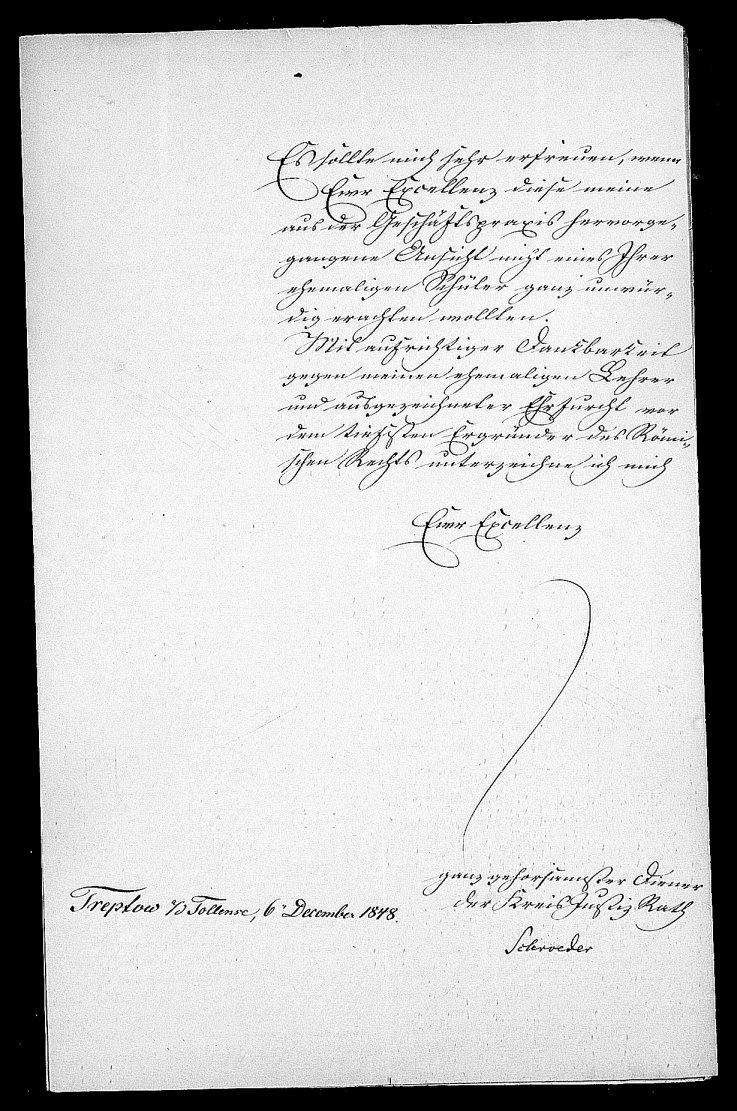 Es sollte mich sehr erfreuen, wenn
Ewr Excellenz diese meine
aus der Geschäftspraxis hervorge-
gangene Ansicht nicht eines Ihrer
ehemaligen Schüler ganz unwür-
dig erachten wollten.
Mit aufrichtiger Dankbarkeit
gegen meinen ehemaligen Lehrer
und ausgezeichneter Ehrfurcht vor
dem tiefsten Ergründer des Römi-
schen Rechts unterzeichne ich mich
Ewr Excellenz
ganz gehorsamster Diener
der Kreis Justiz Rath
Schroeder
Treptow a/d Tollense, 6r December 1848.